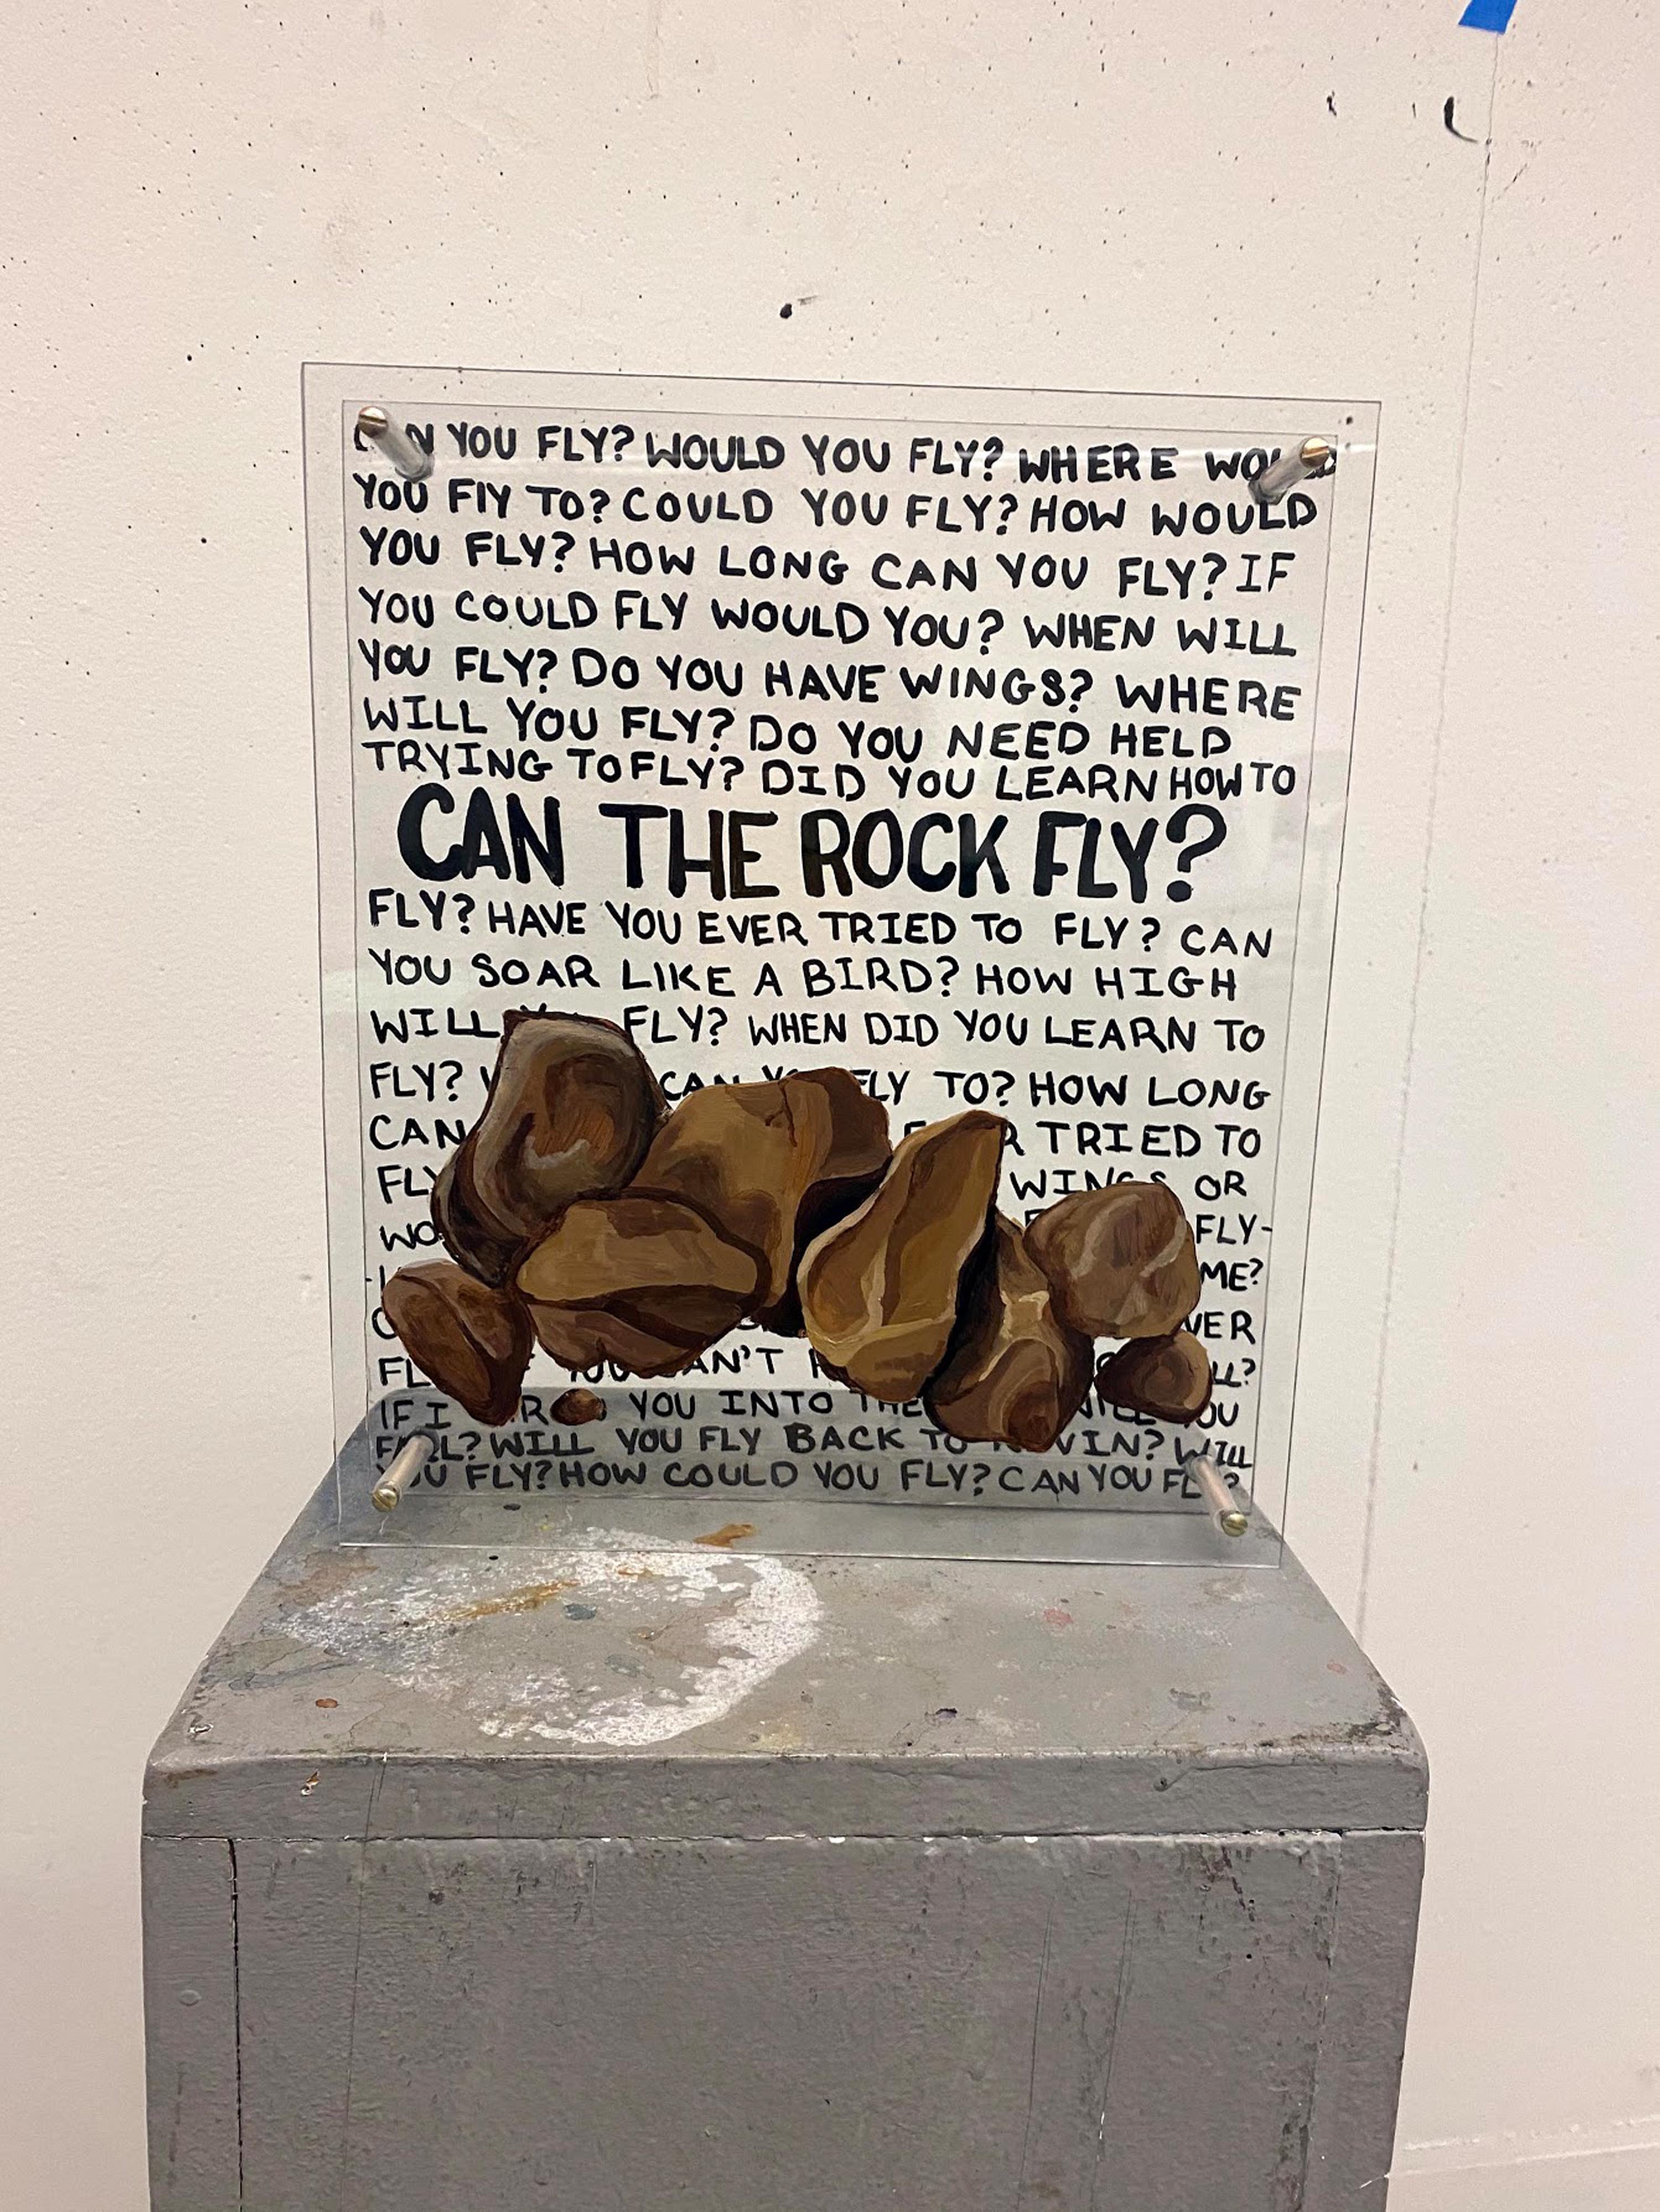 YOU FLY? WOULD YOU FLY? WHERE WOULD
YOU FLY TO? COULD YOU FLY? HOW WOULD
YOU FLY? HOW LONG CAN YOU FLY? IF
YOU COULD FLY WOULD YOU? WHEN WILL
YOU FLY? DO YOU HAVE WINGS? WHERE
WILL YOU FLY? DO YOU NEED HELP
TRYING TO FLY? DID YOU LEARN HOW TO
CAN THE ROCK FLY?
FLY? HAVE YOU EVER TRIED TO FLY? CAN
YOU SOAR LIKE A BIRD? HOW HIGH
WILL YOU FLY? WHEN DID YOU LEARN TO
FLY? CAN YOU FLY TO? HOW LONG
CAN TRIED TO
FLY WINGS OR
FLY-
ME?
FL YOU CAN'T
IF I YOU INTO THE WILL YOU
FALL? WILL YOU FLY BACK TO WILL
YOU FLY? HOW COULD YOU FLY? CAN YOU FLY?